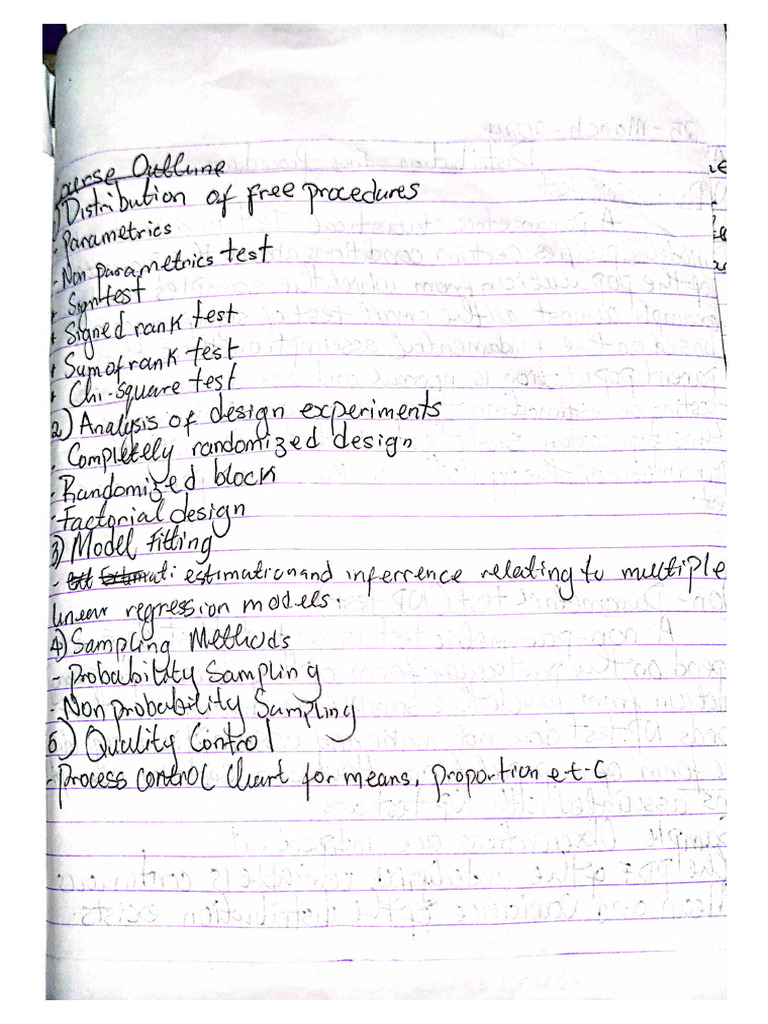 Course Outline
1) Distribution of free procedures
- Parametrics
- Non parametrics test
* Sign test
* Signed rank test
* Sum of rank test
* Chi-square test
2) Analysis of design experiments
- Completely randomized design
- Randomized block
- Factorial design
3) Model Fitting
- estimation and inference relating to multiple
linear regression models.
4) Sampling Methods
- Probability Sampling
- Non probability Sampling
5) Quality Control
- Process control chart for means, proportion e.t.c